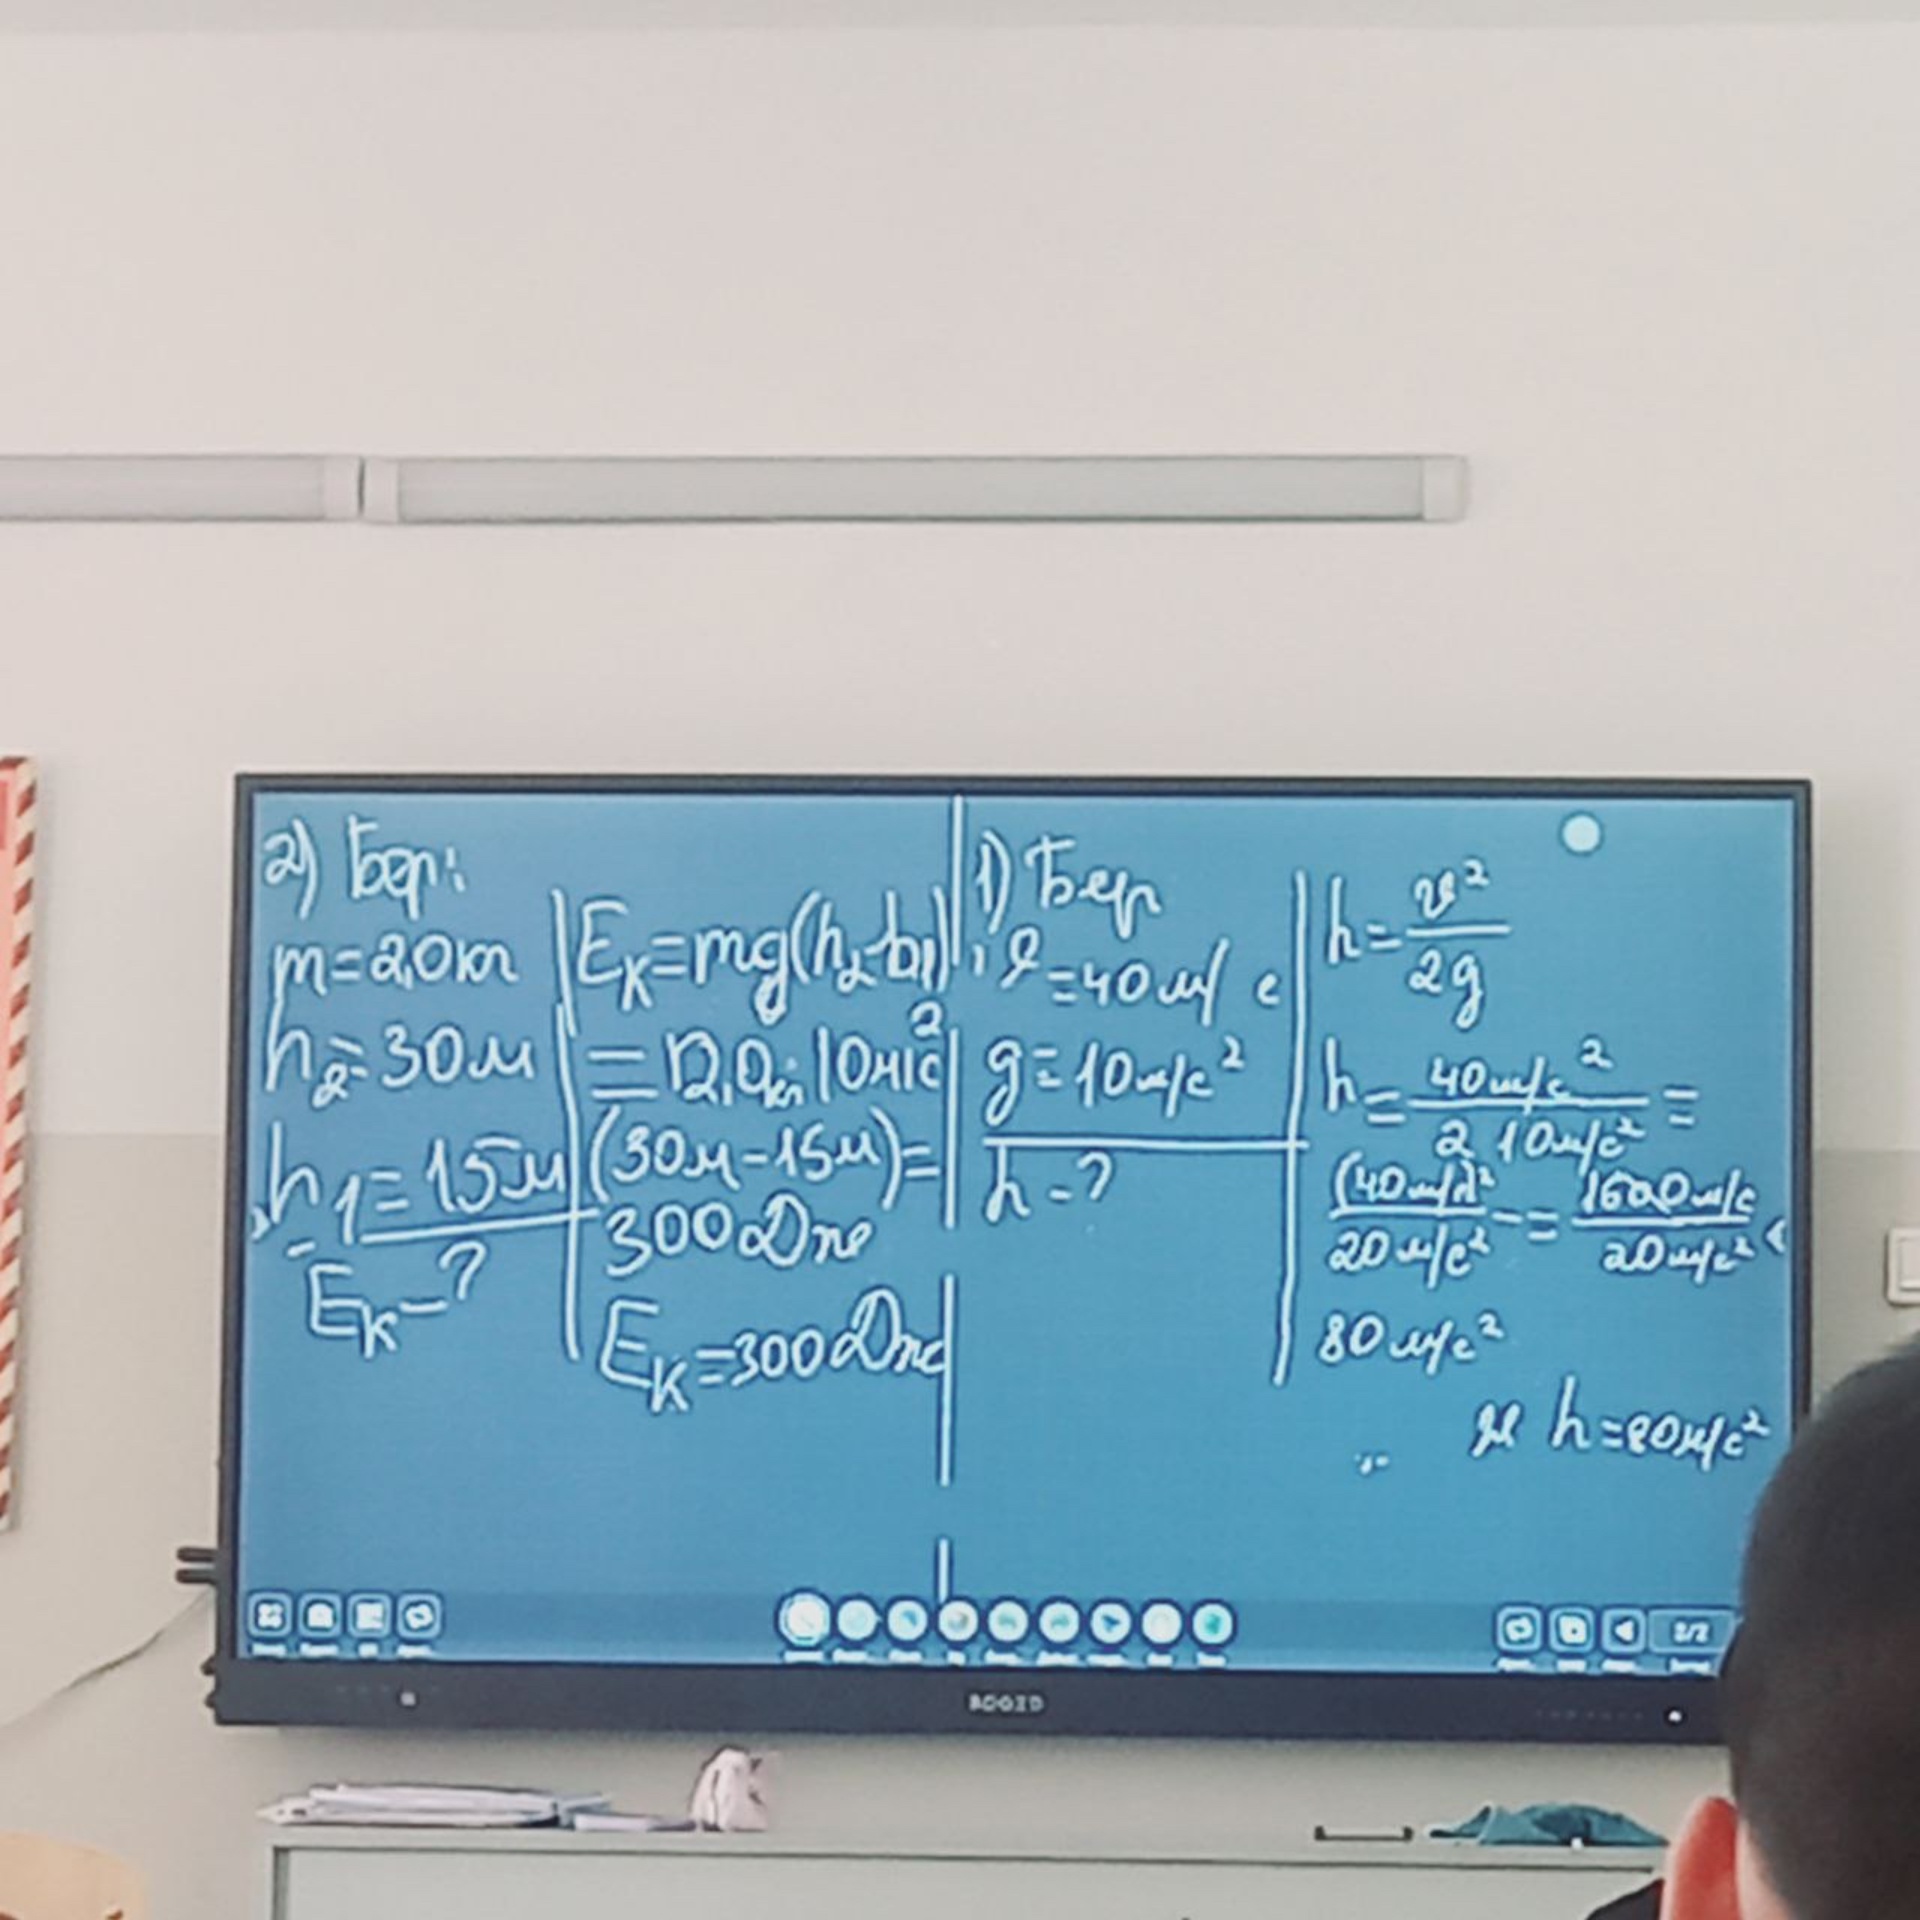 2) Бер:
m=2,0кг
h₂=30м
h₁=15м
Eк-?
Eк=mg(h₂-h₁)
=2,0кг·10м/с²
(30м-15м)=
300Дж
Eк=300Дж
1) Бер
=40м/с
g=10м/с²
h-?
h=v²/2g
h=40м/с²/2 10м/с²=
(40м/с)²/20м/с²-=1600м/с/20м/с²
80м/с²
h=80м/с²
2/2